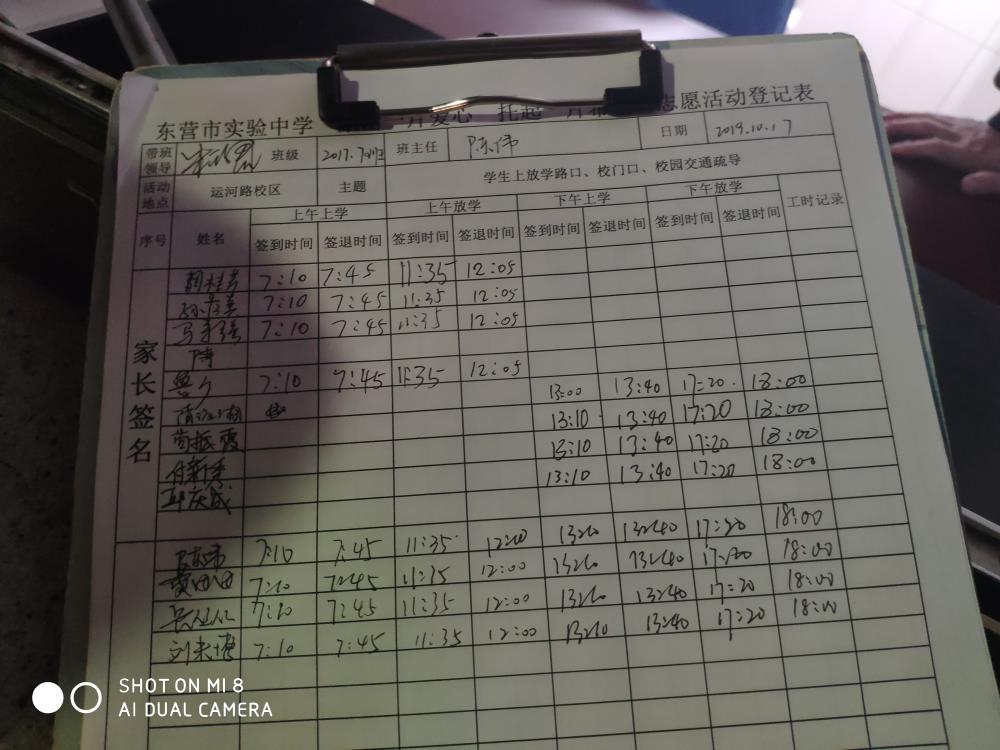 东营市实验中学 一片爱心 托起一片 志愿活动登记表
带班领导 班级 2017.7班 班主任 陈伟 日期 2019.10.17
活动地点 运河路校区 主题 学生上放学路口、校门口、校园交通疏导
序号 姓名 上午上学 上午放学 下午上学 下午放学 工时记录
签到时间 签退时间 签到时间 签退时间 签到时间 签退时间 签到时间 签退时间
家长签名
7:10 7:45 11:35 12:05
7:10 7:45 11:35 12:05
7:10 7:45 11:35 12:05
7:10 7:45 11:35 12:05
13:00 13:40 17:20 18:00
13:10 13:40 17:20 18:00
13:10 13:40 17:20 18:00
13:10 13:40 17:20 18:00
陈伟 7:10 7:45 11:35 12:00 13:10 13:40 17:20 18:00
7:10 7:45 11:35 12:00 13:10 13:40 17:20 18:00
7:10 7:45 11:35 12:00 13:10 13:40 17:20 18:00
7:10 7:45 11:35 12:00 13:10 13:40 17:20 18:00
SHOT ON MI 8
AI DUAL CAMERA